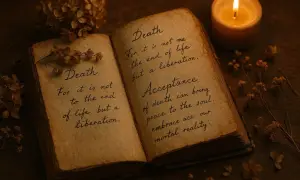 Death
For it is not
to the end
of life but a
liberation.
Death
For it is not me
the end of life
but a liberation.
Acceptance
of death can bring
peace to the soul
embrace us our
mortal reality.